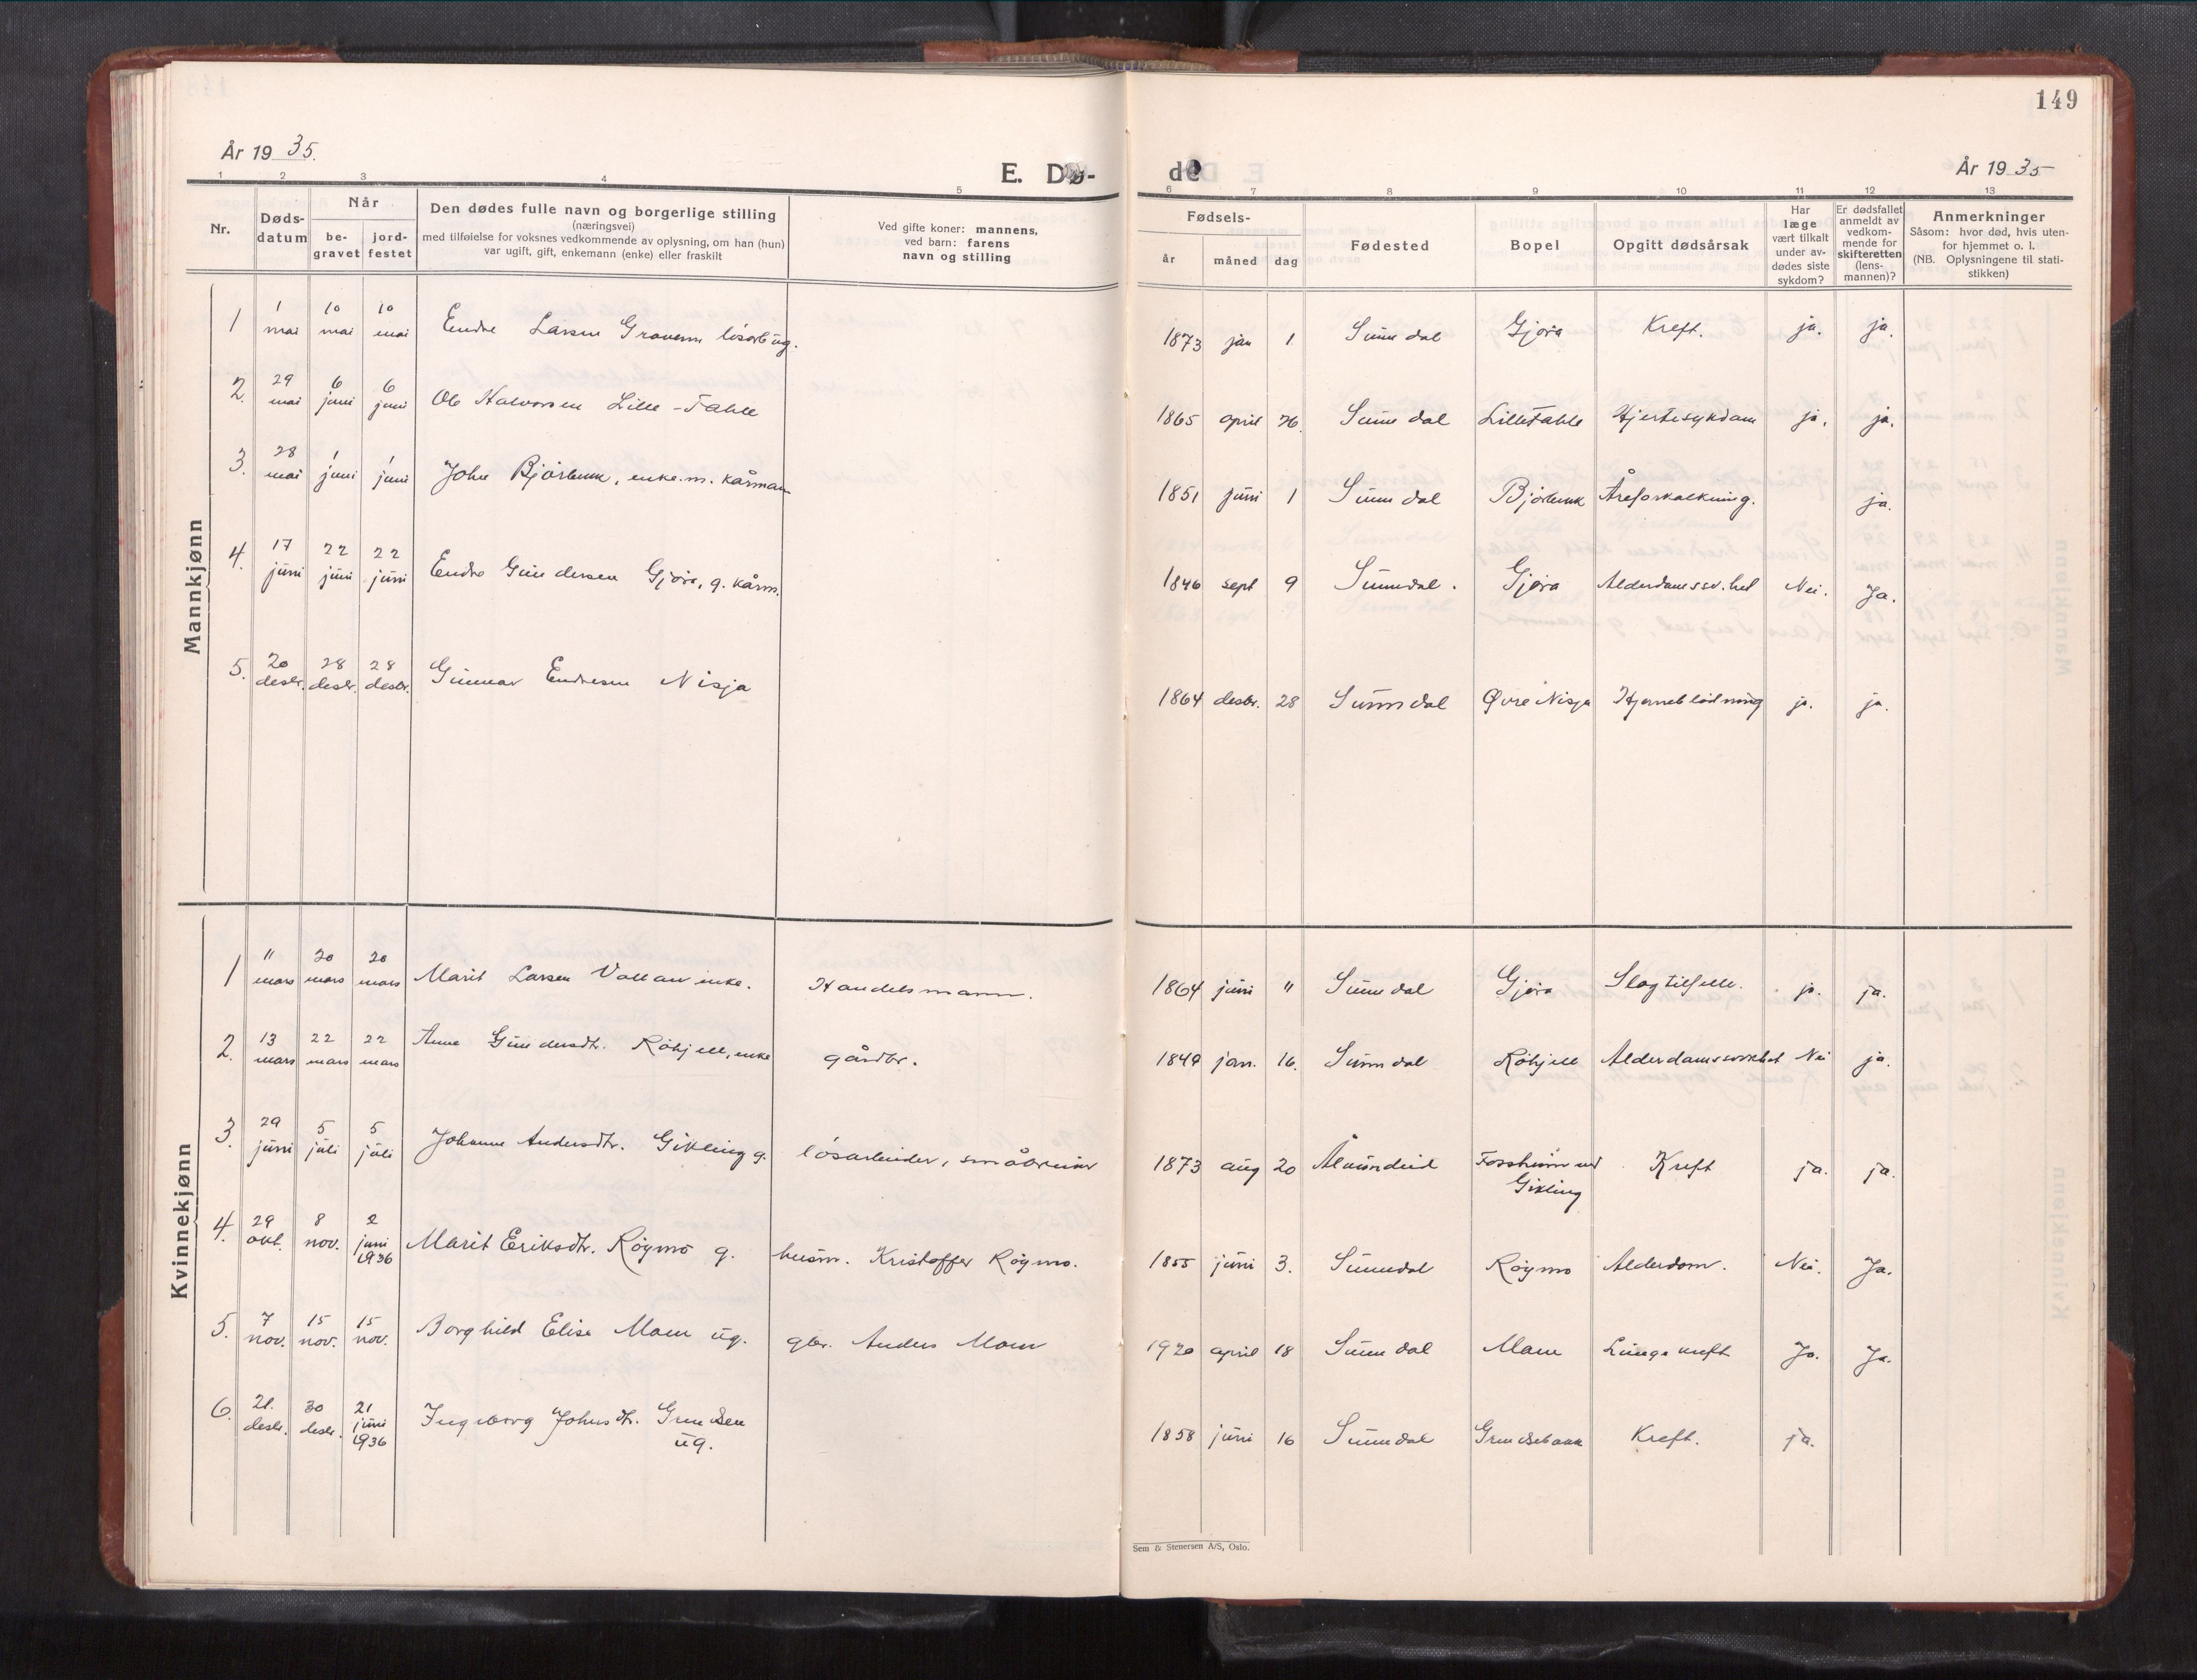 149
År 19 35.
E. Dø-
de
År 19 35
1 2 3 4 5 6 7 8 9 10 11 12 13
Nr.
Døds-
datum
Når
be-
gravet
jord-
festet
Den dødes fulle navn og borgerlige stilling
(næringsvei)
med tilføielse for voksnes vedkommende av oplysning, om han (hun)
var ugift, gift, enkemann (enke) eller fraskilt
Ved gifte koner: mannens,
ved barn: farens
navn og stilling
Fødsels-
år måned dag
Fødested
Bopel
Opgitt dødsårsak
Har
læge
vært tilkalt
under av-
dødes siste
sykdom?
Er dødsfallet
anmeldt av
vedkom-
mende for
skifteretten
(lens-
mannen)?
Anmerkninger
Såsom: hvor død, hvis uten-
for hjemmet o. l.
(NB. Oplysningene til stati-
stikken)
Mannkjønn
1 1 mai 10 mai 10 mai Endre Larsen løsarb ug. 1873 jan 1 Sunndal Gjøra Kreft. ja. ja.
2. 29 mai 6 juni 6 juni Ole Halvorsen Lille-Fahle 1865 april 26. Sunndal LilleFahle Hjertesykdom ja. ja.
3. 28 mai 1 juni 1 juni John Bjørbekk, enke.m. kårmann 1851 juni 1 Sunndal Bjørbekk Åreforkalkning. ja.
4. 17 juni 22 juni 22 juni Endre Gundersen Gjøra, g. kårm. 1846 sept 9 Sunndal. Gjøra Alderdomssv.het Nei. Ja.
5. 20 desbr. 28 desbr. 28 desbr. Gunnar Endresen Nisja 1864 desbr. 28 Sunndal Øvre Nisja Hjerneblødning ja. ja.
Kvinnekjønn
1 11 mars 20 mars 20 mars Marit Larsen enke. Handelsmann. 1864 juni 11 Sunndal Gjøra Slagtilfelle. ja. ja.
2. 13 mars 22 mars 22 mars Anne Gundersdtr. Røhjell, enke gårdbr. 1849 jan. 16. Sunndal Røhjell Alderdomssvakhet Nei ja.
3. 29 juni 5 juli 5 juli Johanne Andersdtr. Gikling g. løsarbeider, småbruker 1873 aug 20 Ålvundeid Fossheim ved
Gikling Kreft ja. ja.
4. 29 okt. 8 nov. 2 juni 1936 Marit Eriksdtr. Røymo g. husm. Kristoffer Røymo. 1855 juni 3. Sunndal Røymo Alderdom. Nei. Ja.
5. 7 nov. 15 nov. 15 nov. Borghild Elise Moen ug. gbr. Anders Moen 1920 april 18 Sunndal Moen Lunge kreft Ja. Ja.
6. 21. desbr. 30 desbr. 21 juni 1936 Ingeborg Johnsdtr. ug. 1858 juni 16 Sunndal Kreft. ja.
Sem & Stenersen A/S, Oslo.